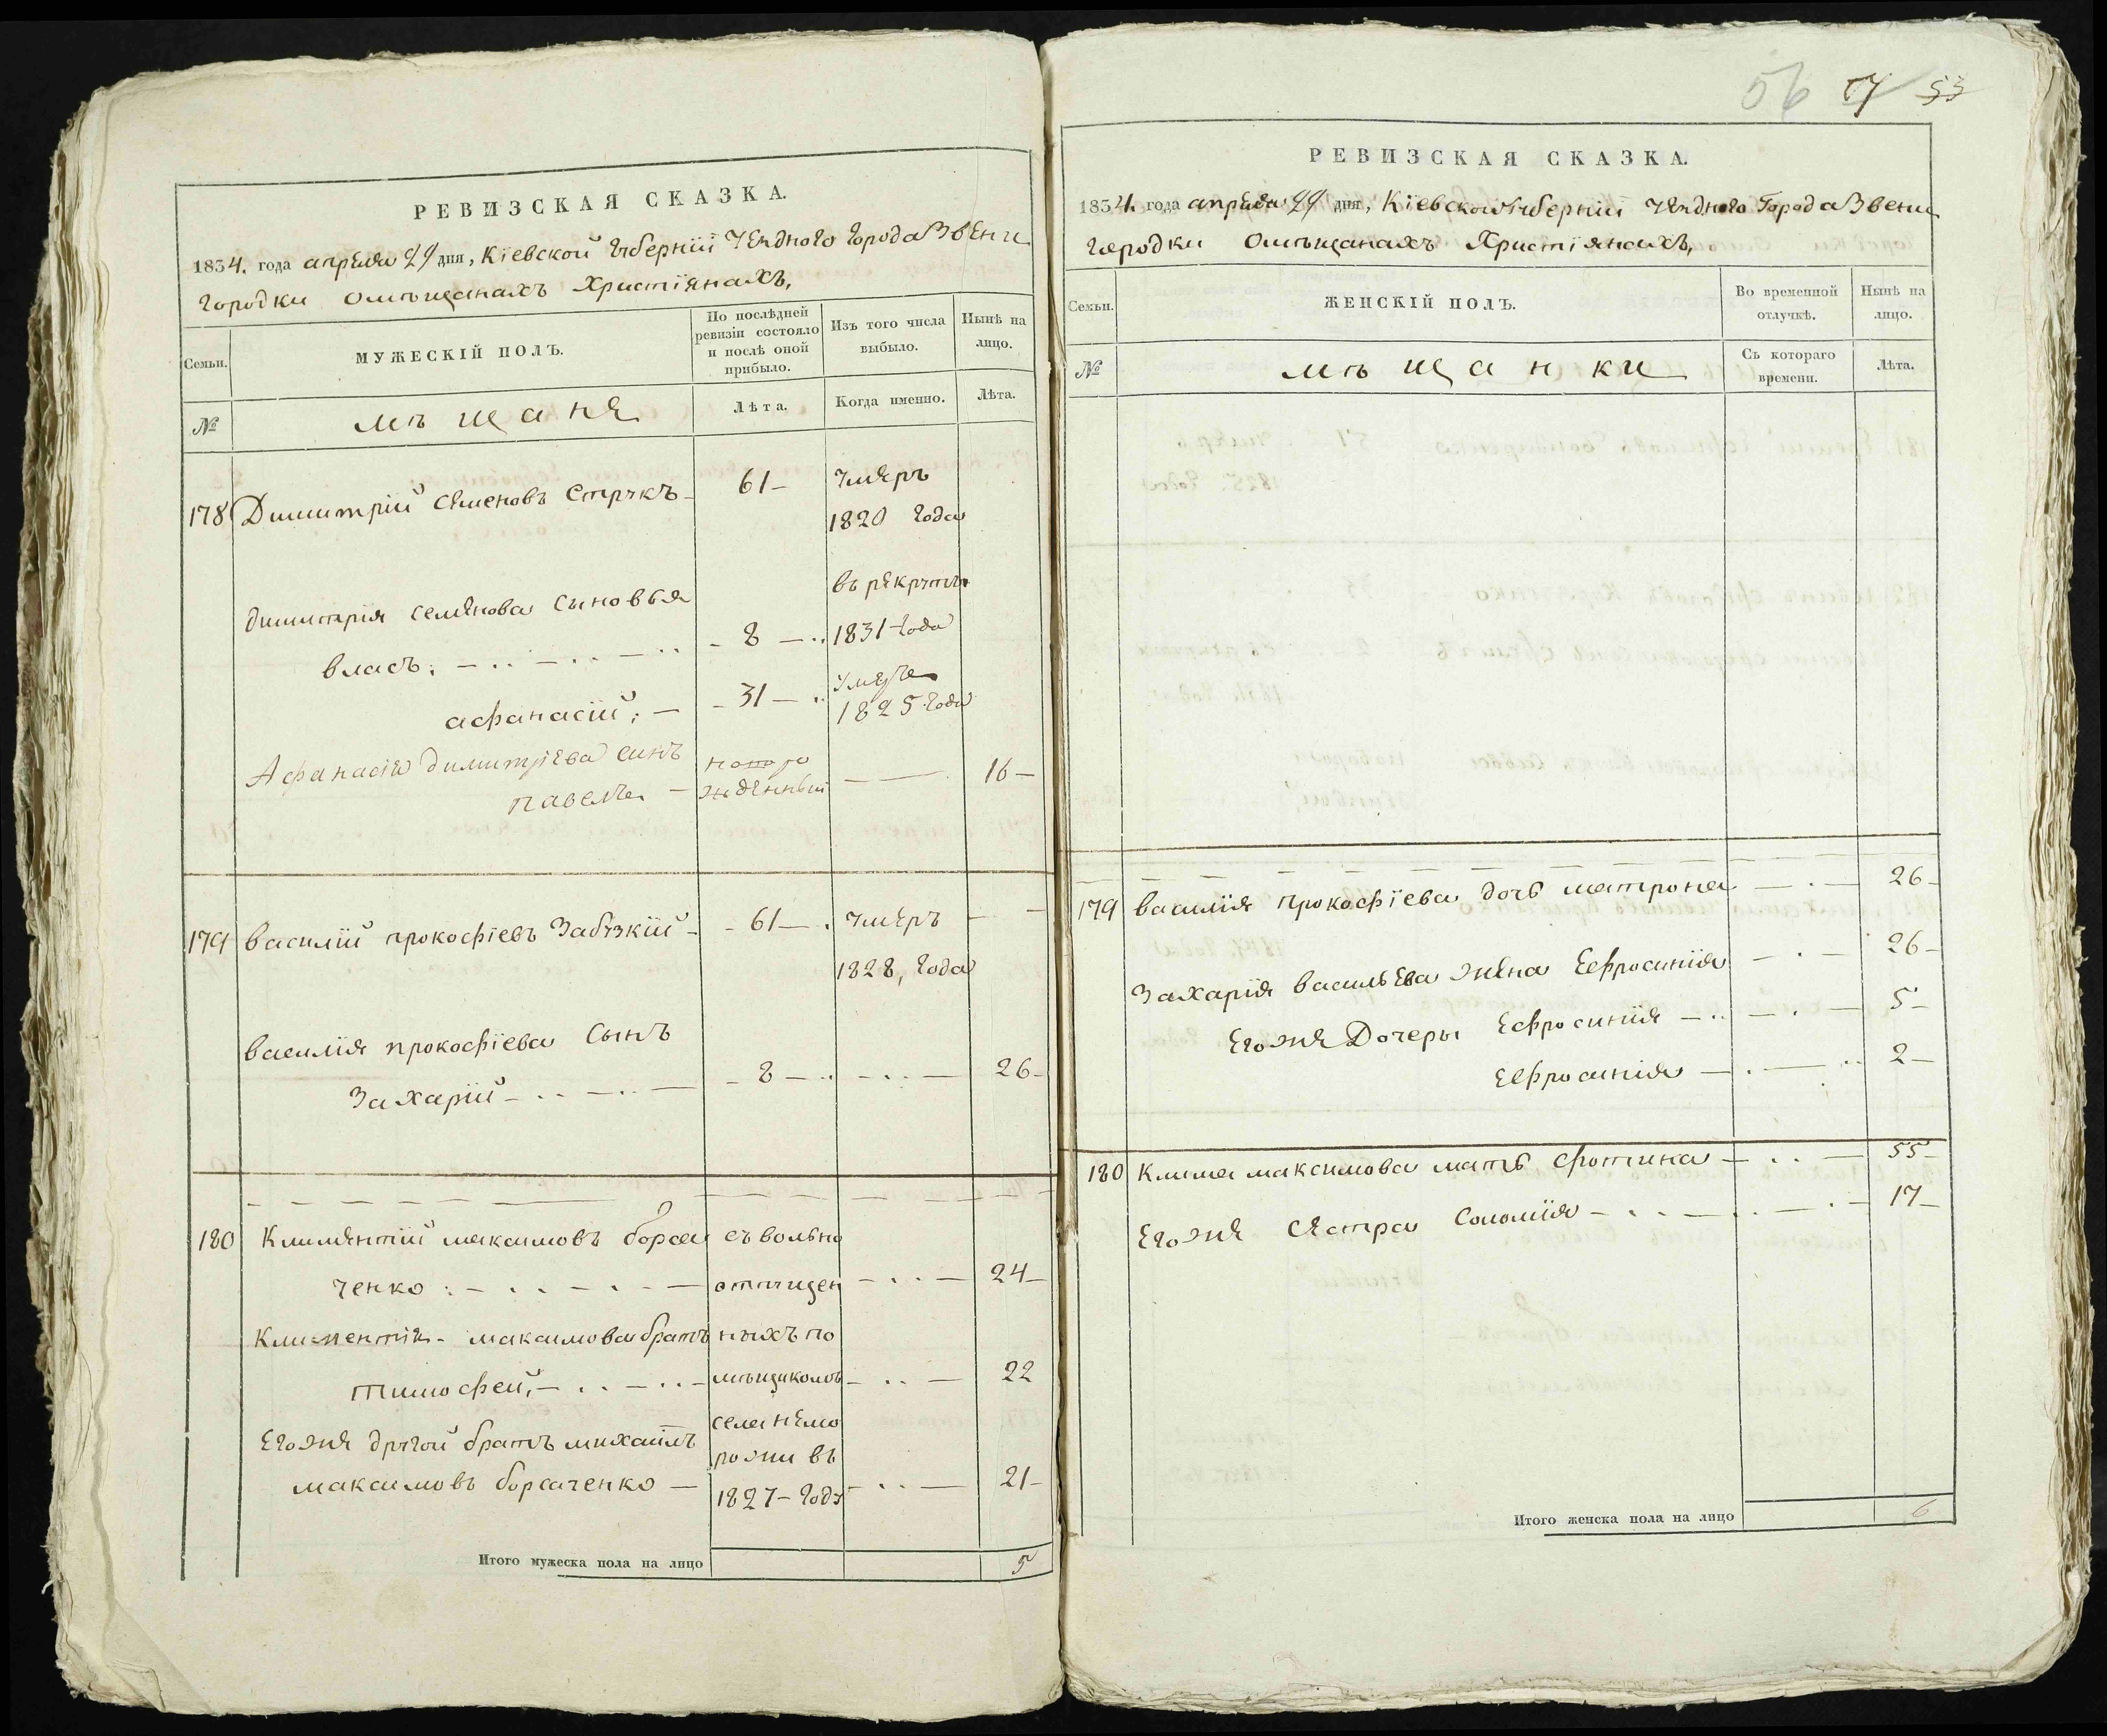 РЕВИЗСКАЯ СКАЗКА.
1834. года апреля 29 дня, Кіевской губерніи уезднаго города Звени
городки омѣщанахъ христіянахъ,
Семьи.
МУЖЕСКІЙ ПОЛЪ.
По послѣдней
ревизіи состояло
и послѣ оной
прибыло.
Изъ того числа
выбыло.
Нынѣ на
лицо.
№
мѣщане
Лѣта.
Когда именно.
Лѣта.
178 Димитрій Семеновъ Струкъ 61 умеръ
1820 года
Димитрія Семенова сыновья въ рекруты
власъ 8 1831 года
афанасій 31 умре
1825 года
Афанасія димитріева синъ ново ро 16
павелъ жденный
179 Василій прокофіевъ Забузкій 61 умеръ
1828, года
Василія прокофіева Сынъ
Захарій 8 26
180 Климентій максимовъ борса съ вольно
ченко отпущен 24
Климентія максимова братъ ныхъ по
тимофей мѣщикомъ 22
села немо
Егоже другой братъ михаилъ рожи въ
максимовъ борсаченко 1827 году 21
Итого мужеска пола на лицо 5
56 57 53
РЕВИЗСКАЯ СКАЗКА.
1834. года апреля 29 дня, Кіевской губерніи уезднаго Города Звени
городки омѣщанахъ христіянахъ,
Семьи.
ЖЕНСКІЙ ПОЛЪ.
Во временной
отлучкѣ.
Нынѣ на
лицо.
№
мѣщанки
Съ котораго
времени.
Лѣта.
179 Василія прокофіева дочь матрона 26
Захарія васильева жена Еефросинія 26
Егоже Дочеры Ефросинія 5
Еефросинія 2
180 Клима максимова мать фотина 55
Егоже Сестра Соломія 17
Итого женска пола на лицо 6